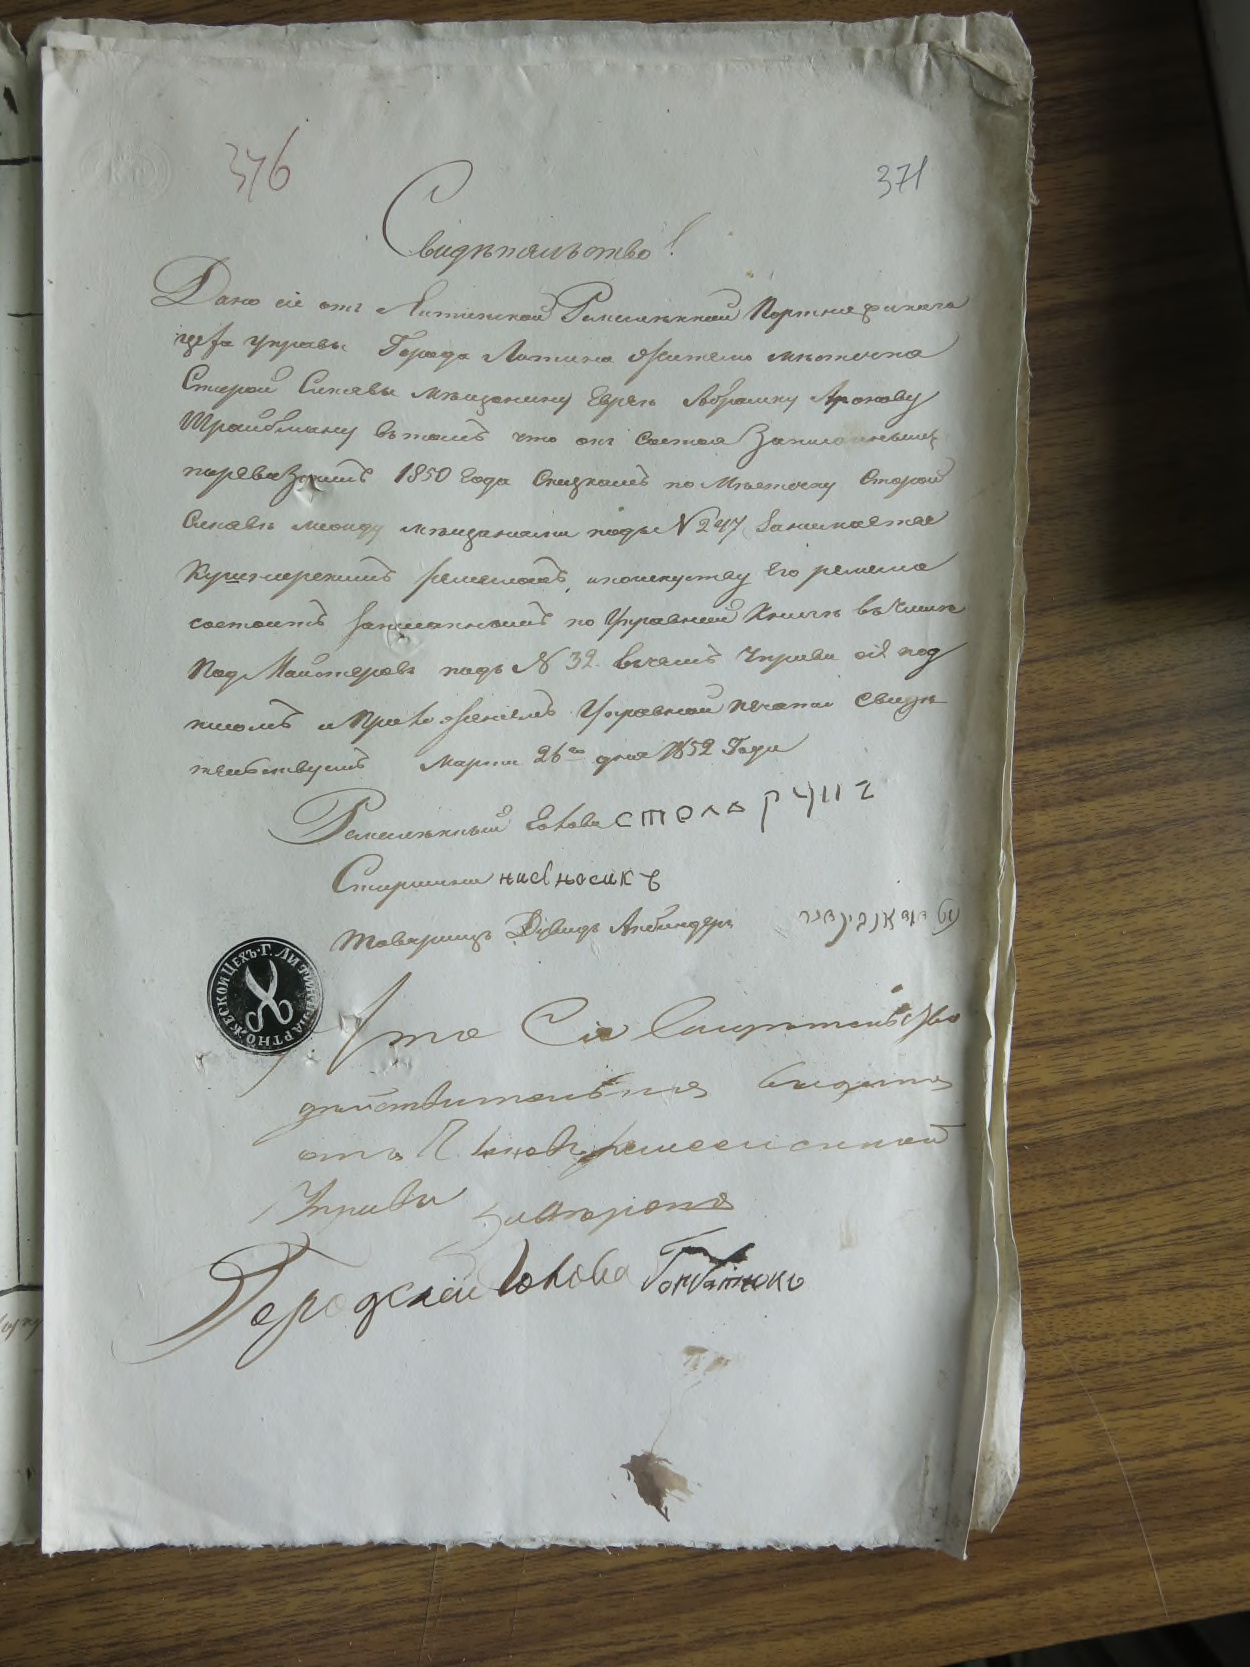 376
371
Свидѣтельство!
Дано сіе отъ Литинской Ремесленной Портняжскаго
цеха Управы Города Литина Жителю мѣстечка
Старой Синявы мѣщанину Еврею Абрамку Аронову
Шрайбману въ томъ что онъ состоя Записанымъ
по ревизскимъ 1850 Года Спискамъ по Мѣстечку Старой
Синявѣ между мѣщанами подъ №247 Занимается
Кушнерскимъ ремесломъ, по искуству его ремесла
состоитъ записаннымъ по Управной Книгѣ въ Числѣ
Под Майстеровъ подъ № 32. въ чемъ Управа сія под
писомъ и Приложеніемъ Управной печати Свидѣ
тельствуетъ Марта 26го дня 1852 Года
Ремесленный Голова столярчиг
Старшина носикъ
товарищъ Дувидъ
Г. ЛИТИНА ПАРТНОЖЕСКОЙ ЦЕХЪ
Что Сіе Свидѣтельство
дѣйствительно выдано
отъ Ремесленной
Управы
Городской Голова Горбатюкъ